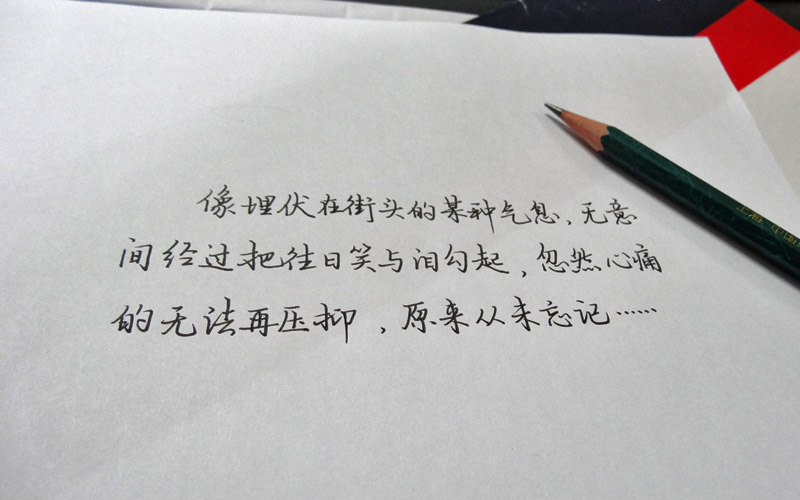 像埋伏在街头的某种气息、无意
间经过把往日笑与泪勾起，忽然心痛
的无法再压抑，原来从未忘记……
上海 中国